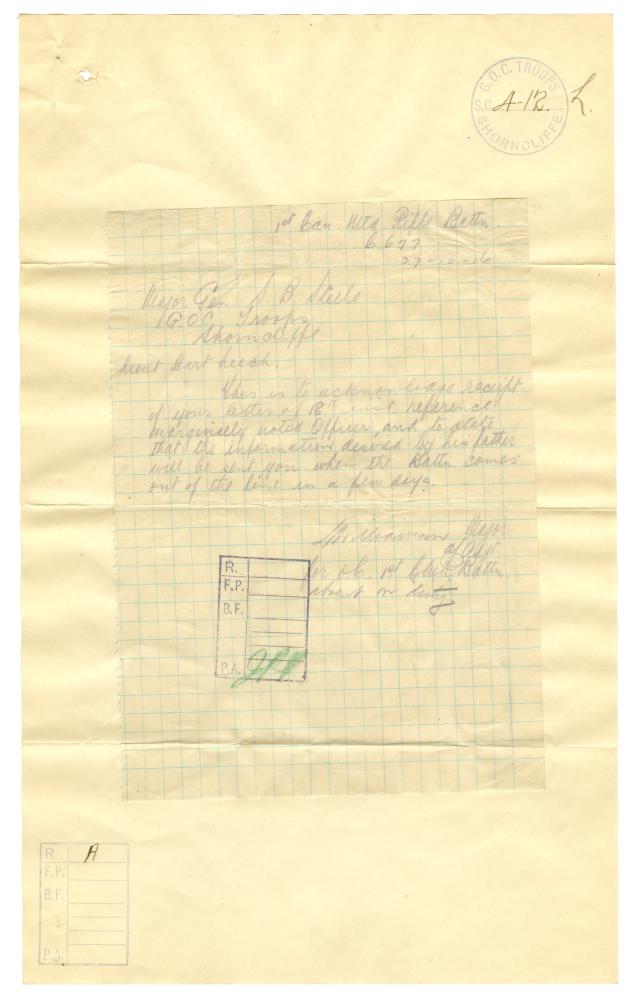 G.O.C. TROOPS
S.C. A-12. L.
SHORNCLIFFE
1st Can Mtd Rifle Battn
6677
27-10-16
Major Gen S B Steele
G.O.C. Troops
Shorncliffe
Lieut Earl
This is to acknowledge receipt
of your letter of inst reference
marginally noted Officer, and to state
that the information desired by his father
will be sent you when the Battn comes
out of the line in a few days.
Major
a/Adjt.
for O.C. 1st C.M.R. Battn.
absent on duty
R.
F.P.
B.F.
P.A.
R. A
F.P.
B.F.
P.A.